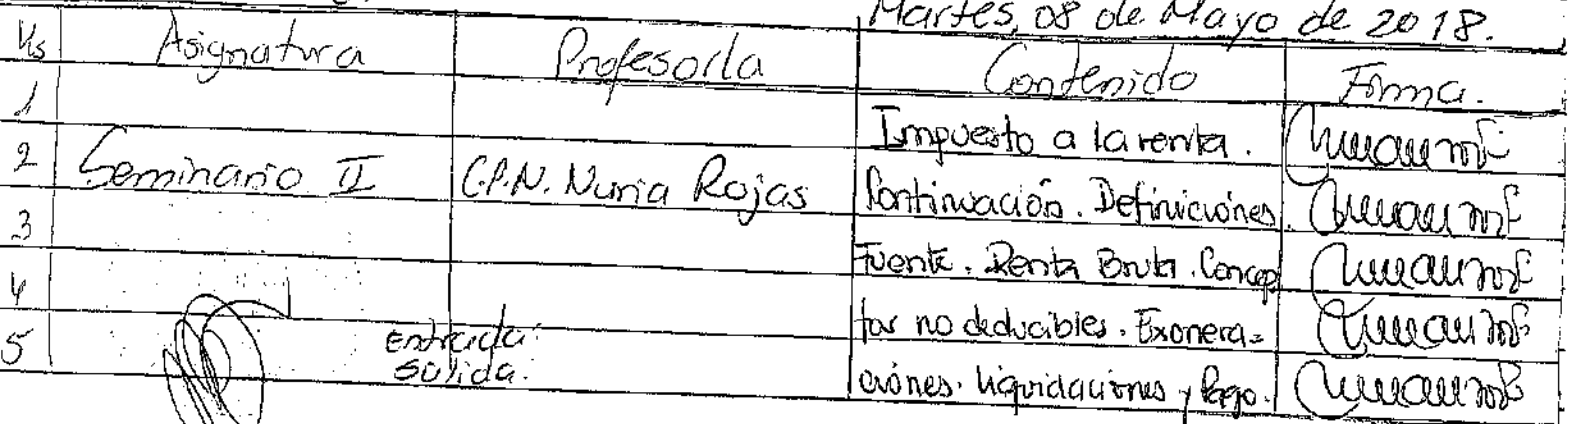 Martes, 08 de Mayo de 2018.
Hs Asignatura Profesor/a Contenido Firma.
1 Impuesto a la renta.
2 Seminario II C.P.N. Nuria Rojas Continuación. Definiciones.
3 Fuente. Renta Bruta. Concep
4 tos no deducibles. Exonera=
5 entrada: ciones. Liquidaciones y Pago.
salida.